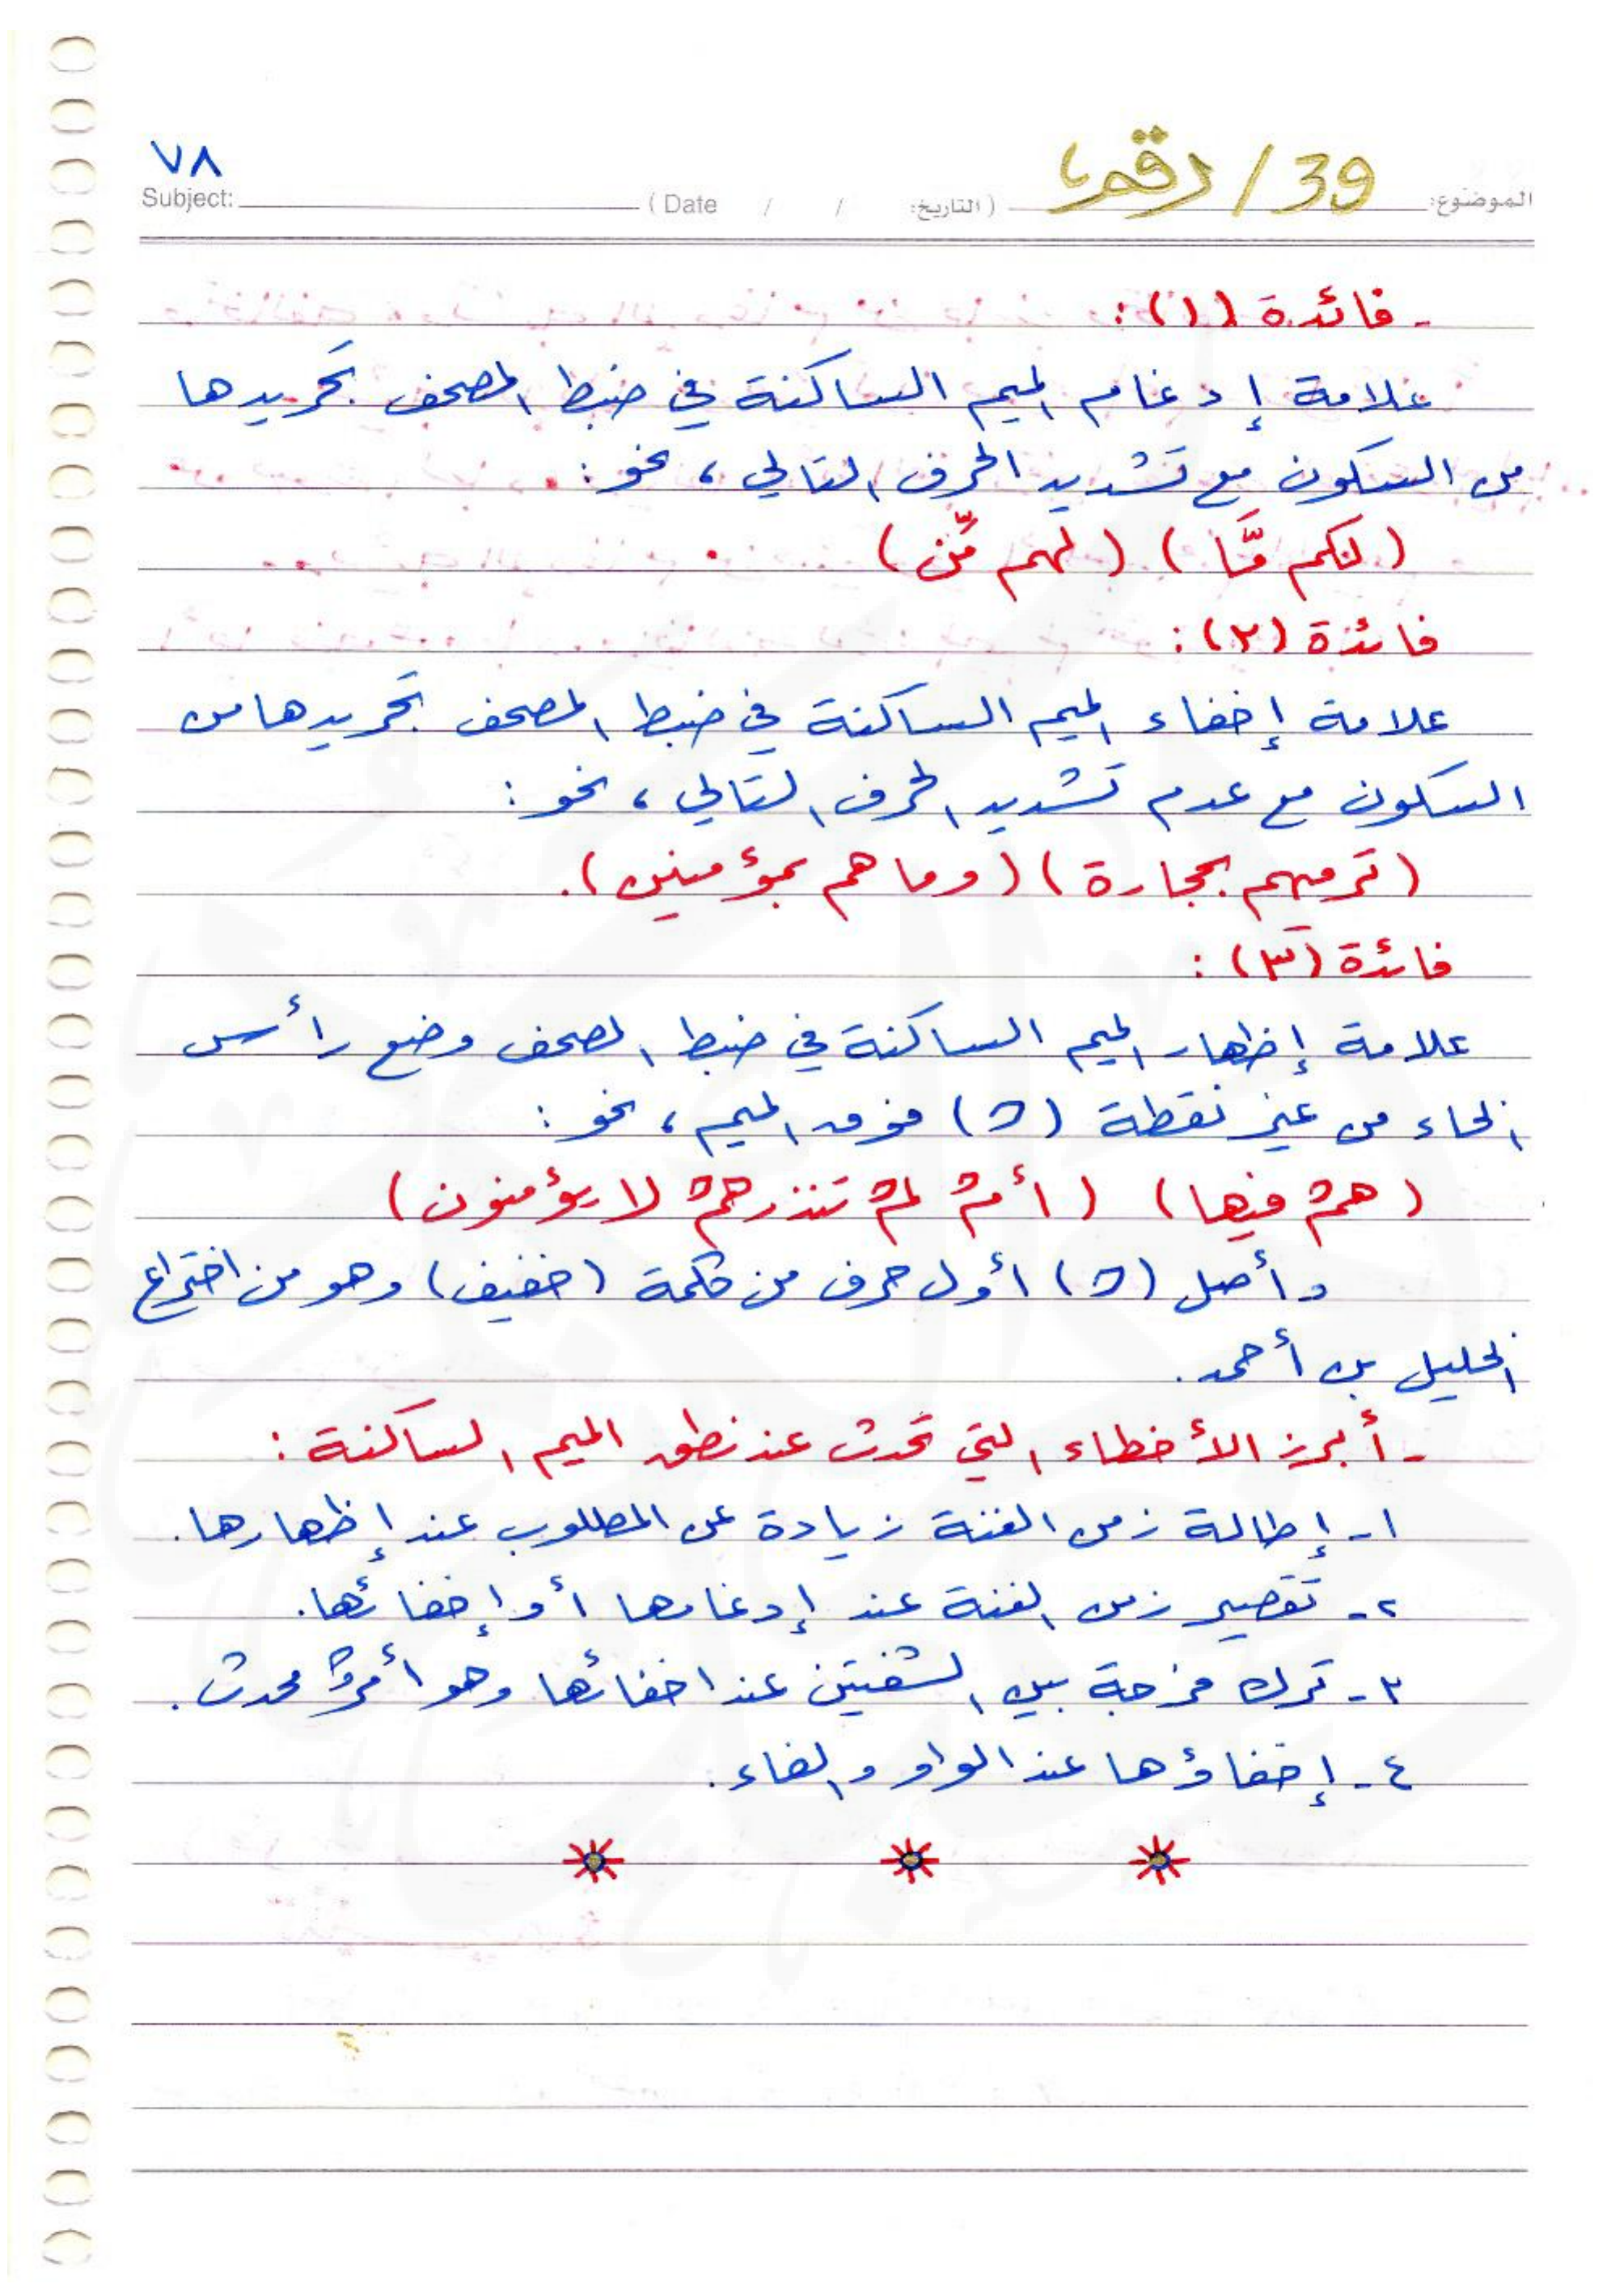 ٧٨
الموضوع: 39 / رقم (التاريخ: / / Date) Subject:
- فائدة (١):
علامة إدغام الميم الساكنة في ضبط المصحف تجريدها
من السكون مع تشديد الحرف التالي، نحو:
(لكم مَّا) (لهم مِّن)
فائدة (٢):
علامة إخفاء الميم الساكنة في ضبط المصحف تجريدها من
السكون مع عدم تشديد الحرف التالي، نحو:
(ترميهم بحجارة) (وما هم بمؤمنين).
فائدة (٣):
علامة إظهار الميم الساكنة في ضبط المصحف وضع رأس
الحاء من غير نقطة (ح) فوق الميم، نحو:
(همْ فيها) (أمْ لمْ تنذرهمْ لا يؤمنون)
وأصل (ح) أول حرف من كلمة (خفيف) وهو من اختراع
الخليل بن أحمد.
- أبرز الأخطاء التي تحدث عند نطق الميم الساكنة:
١- إطالة زمن الغنة زيادة عن المطلوب عند إظهارها.
٢- تقصير زمن الغنة عند إدغامها أو إخفائها.
٣- ترك فرجة بين الشفتين عند اخفائها وهو أمرٌ محدث.
٤- إخفاؤها عند الواو والفاء.